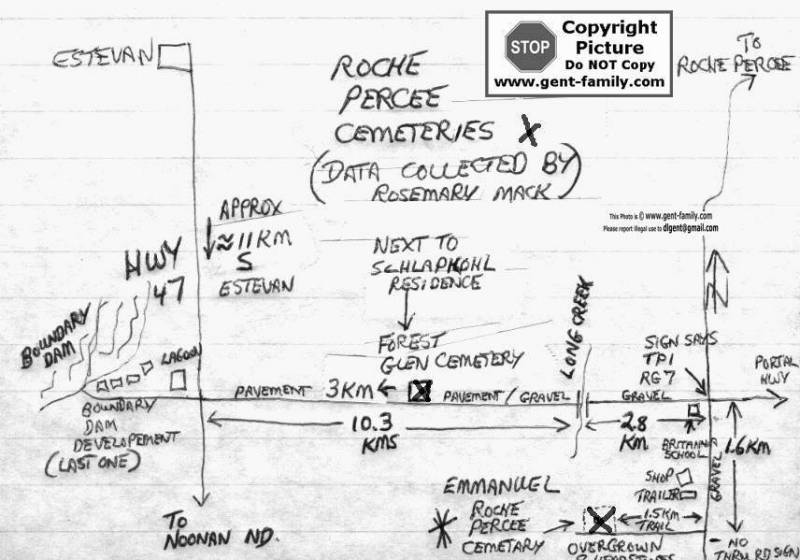 ESTEVAN
ROCHE
PERCEE
CEMETERIES X
(DATA COLLECTED BY
ROSEMARY MACK)
STOP
Copyright
Picture
Do NOT Copy
www.gent-family.com
TO
ROCHE PERCEE
This Photo is © www.gent-family.com
Please report illegal use to digent@gmail.com
APPROX
≈ 11 KM
S
ESTEVAN
HWY
47
BOUNDARY
DAM
LAGOON
NEXT TO
SCHLAPKOHL
RESIDENCE
FOREST
GLEN CEMETERY
LONG CREEK
SIGN SAYS
TP1
RG7
N
PORTAL
HWY
PAVEMENT 3KM
PAVEMENT / GRAVEL
GRAVEL
BOUNDARY
DAM
DEVELOPEMENT
(LAST ONE)
10.3
KMS
2.8
KM
BRITANNIA
SCHOOL
1.6KM
GRAVEL
SHOP
TRAILER
1.5KM
TRAIL
EMMANUEL
ROCHE
PERCEE
CEMETARY
TO
NOONAN ND.
OVERGROWN
- NO
THRU RD SIGN